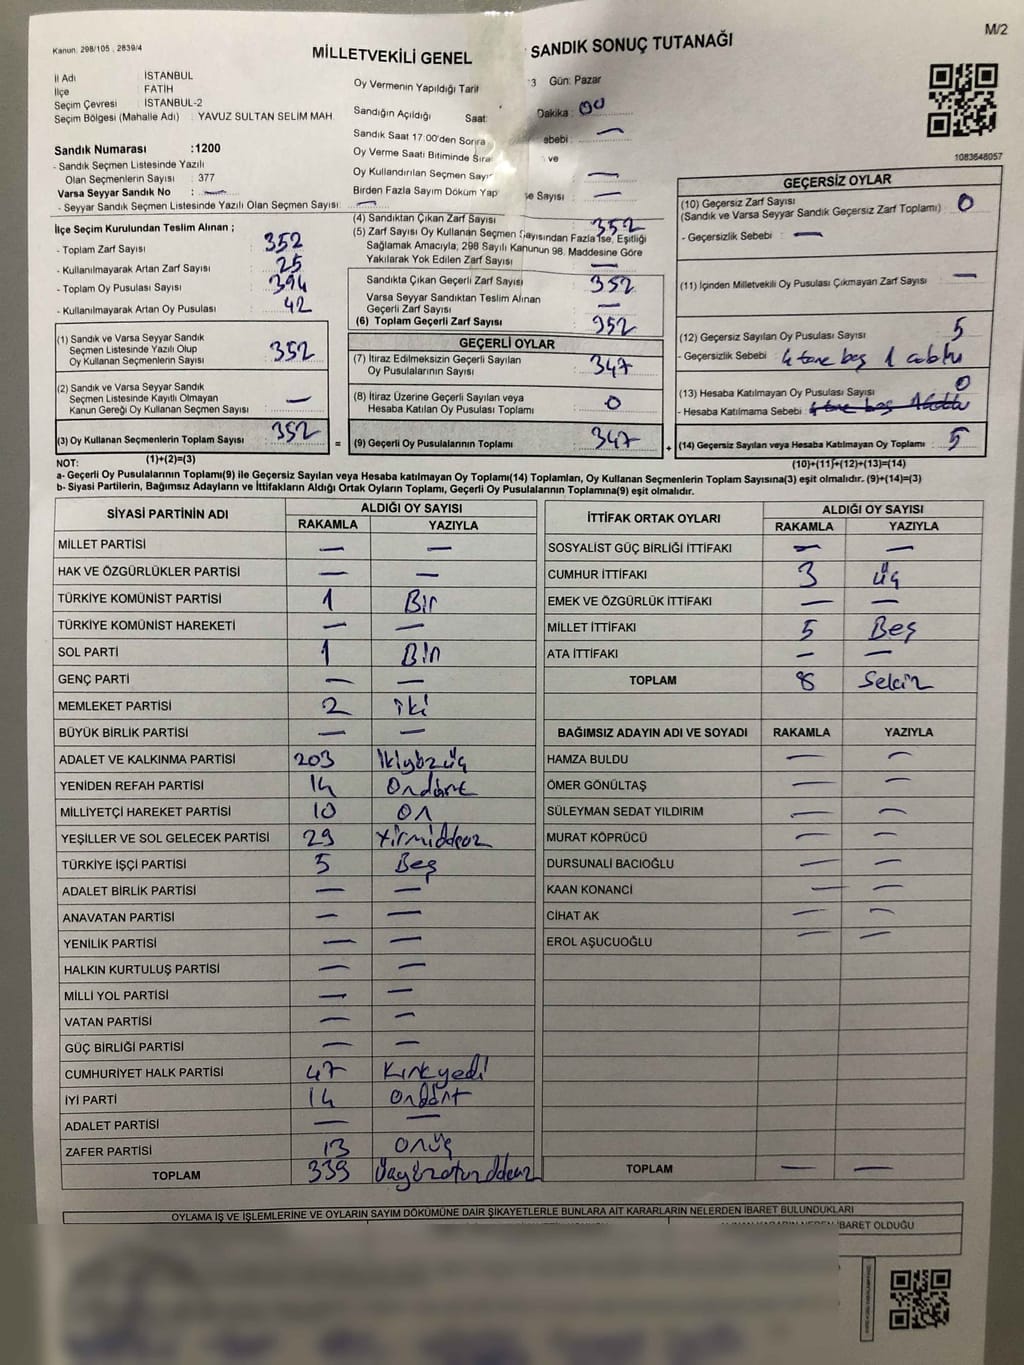 Kanun: 298/105 , 2839/4
M/2
MİLLETVEKİLİ GENEL SANDIK SONUÇ TUTANAĞI
İl Adı İSTANBUL
İlçe FATİH
Seçim Çevresi İSTANBUL-2
Seçim Bölgesi (Mahalle Adı) : YAVUZ SULTAN SELİM MAH.
Sandık Numarası :1200
- Sandık Seçmen Listesinde Yazılı
Olan Seçmenlerin Sayısı : 377
Varsa Seyyar Sandık No : —
- Seyyar Sandık Seçmen Listesinde Yazılı Olan Seçmen Sayısı: —
Oy Vermenin Yapıldığı Tarih 3 Gün: Pazar
Sandığın Açıldığı Saat: Dakika : 00
Sandık Saat 17:00'den Sonra ebebi : —
Oy Verme Saati Bitiminde Sıra ve
Oy Kullandırılan Seçmen Sayı —
Birden Fazla Sayım Döküm Yap se Sayısı : —
1083648057
İlçe Seçim Kurulundan Teslim Alınan ;
- Toplam Zarf Sayısı : 352
- Kullanılmayarak Artan Zarf Sayısı : 25
- Toplam Oy Pusulası Sayısı : 394
- Kullanılmayarak Artan Oy Pusulası : 42
(1) Sandık ve Varsa Seyyar Sandık
Seçmen Listesinde Yazılı Olup
Oy Kullanan Seçmenlerin Sayısı : 352
(2) Sandık ve Varsa Seyyar Sandık
Seçmen Listesinde Kayıtlı Olmayan
Kanun Gereği Oy Kullanan Seçmen Sayısı : —
(3) Oy Kullanan Seçmenlerin Toplam Sayısı : 352
(1)+(2)=(3)
(4) Sandıktan Çıkan Zarf Sayısı : 352
(5) Zarf Sayısı Oy Kullanan Seçmen Sayısından Fazla İse, Eşitliği
Sağlamak Amacıyla; 298 Sayılı Kanunun 98. Maddesine Göre
Yakılarak Yok Edilen Zarf Sayısı : —
Sandıkta Çıkan Geçerli Zarf Sayısı : 352
Varsa Seyyar Sandıktan Teslim Alınan
Geçerli Zarf Sayısı : —
(6) Toplam Geçerli Zarf Sayısı : 352
GEÇERLİ OYLAR
(7) İtiraz Edilmeksizin Geçerli Sayılan
Oy Pusulalarının Sayısı : 347
(8) İtiraz Üzerine Geçerli Sayılan veya
Hesaba Katılan Oy Pusulası Toplamı : 0
= (9) Geçerli Oy Pusulalarının Toplamı : 347
GEÇERSİZ OYLAR
(10) Geçersiz Zarf Sayısı
(Sandık ve Varsa Seyyar Sandık Geçersiz Zarf Toplamı) : 0
- Geçersizlik Sebebi : —
(11) İçinden Milletvekili Oy Pusulası Çıkmayan Zarf Sayısı : —
(12) Geçersiz Sayılan Oy Pusulası Sayısı : 5
- Geçersizlik Sebebi : 4 tane boş 1
(13) Hesaba Katılmayan Oy Pusulası Sayısı : 0
- Hesaba Katılmama Sebebi : 4 tane boş
+ (14) Geçersiz Sayılan veya Hesaba Katılmayan Oy Toplamı : 5
(10)+(11)+(12)+(13)=(14)
NOT:
a- Geçerli Oy Pusulalarının Toplamı(9) ile Geçersiz Sayılan veya Hesaba katılmayan Oy Toplamı(14) Toplamları, Oy Kullanan Seçmenlerin Toplam Sayısına(3) eşit olmalıdır. (9)+(14)=(3)
b- Siyasi Partilerin, Bağımsız Adayların ve İttifakların Aldığı Ortak Oyların Toplamı, Geçerli Oy Pusulalarının Toplamına(9) eşit olmalıdır.
SİYASİ PARTİNİN ADI ALDIĞI OY SAYISI
RAKAMLA YAZIYLA
MİLLET PARTİSİ — —
HAK VE ÖZGÜRLÜKLER PARTİSİ — —
TÜRKİYE KOMÜNİST PARTİSİ 1 Bir
TÜRKİYE KOMÜNİST HAREKETİ — —
SOL PARTİ 1 Bir
GENÇ PARTİ — —
MEMLEKET PARTİSİ 2 iki
BÜYÜK BİRLİK PARTİSİ — —
ADALET VE KALKINMA PARTİSİ 203 ikiyüzüç
YENİDEN REFAH PARTİSİ 14 Ondört
MİLLİYETÇİ HAREKET PARTİSİ 10 On
YEŞİLLER VE SOL GELECEK PARTİSİ 29 Yirmidokuz
TÜRKİYE İŞÇİ PARTİSİ 5 Beş
ADALET BİRLİK PARTİSİ — —
ANAVATAN PARTİSİ — —
YENİLİK PARTİSİ — —
HALKIN KURTULUŞ PARTİSİ — —
MİLLİ YOL PARTİSİ — —
VATAN PARTİSİ — —
GÜÇ BİRLİĞİ PARTİSİ — —
CUMHURİYET HALK PARTİSİ 47 Kırkyedi
İYİ PARTİ 14 Ondört
ADALET PARTİSİ — —
ZAFER PARTİSİ 13 Onüç
TOPLAM 339 Üçyüzotuzdokuz
İTTİFAK ORTAK OYLARI ALDIĞI OY SAYISI
RAKAMLA YAZIYLA
SOSYALİST GÜÇ BİRLİĞİ İTTİFAKI — —
CUMHUR İTTİFAKI 3 üç
EMEK VE ÖZGÜRLÜK İTTİFAKI — —
MİLLET İTTİFAKI 5 Beş
ATA İTTİFAKI — —
TOPLAM 8 Sekiz
BAĞIMSIZ ADAYIN ADI VE SOYADI RAKAMLA YAZIYLA
HAMZA BULDU — —
ÖMER GÖNÜLTAŞ — —
SÜLEYMAN SEDAT YILDIRIM — —
MURAT KÖPRÜCÜ — —
DURSUNALİ BACIOĞLU — —
KAAN KONANCİ — —
CİHAT AK — —
EROL AŞUCUOĞLU — —
TOPLAM — —
OYLAMA İŞ VE İŞLEMLERİNE VE OYLARIN SAYIM DÖKÜMÜNE DAİR ŞİKAYETLERLE BUNLARA AİT KARARLARIN NELERDEN İBARET BULUNDUKLARI
İBARET OLDUĞU